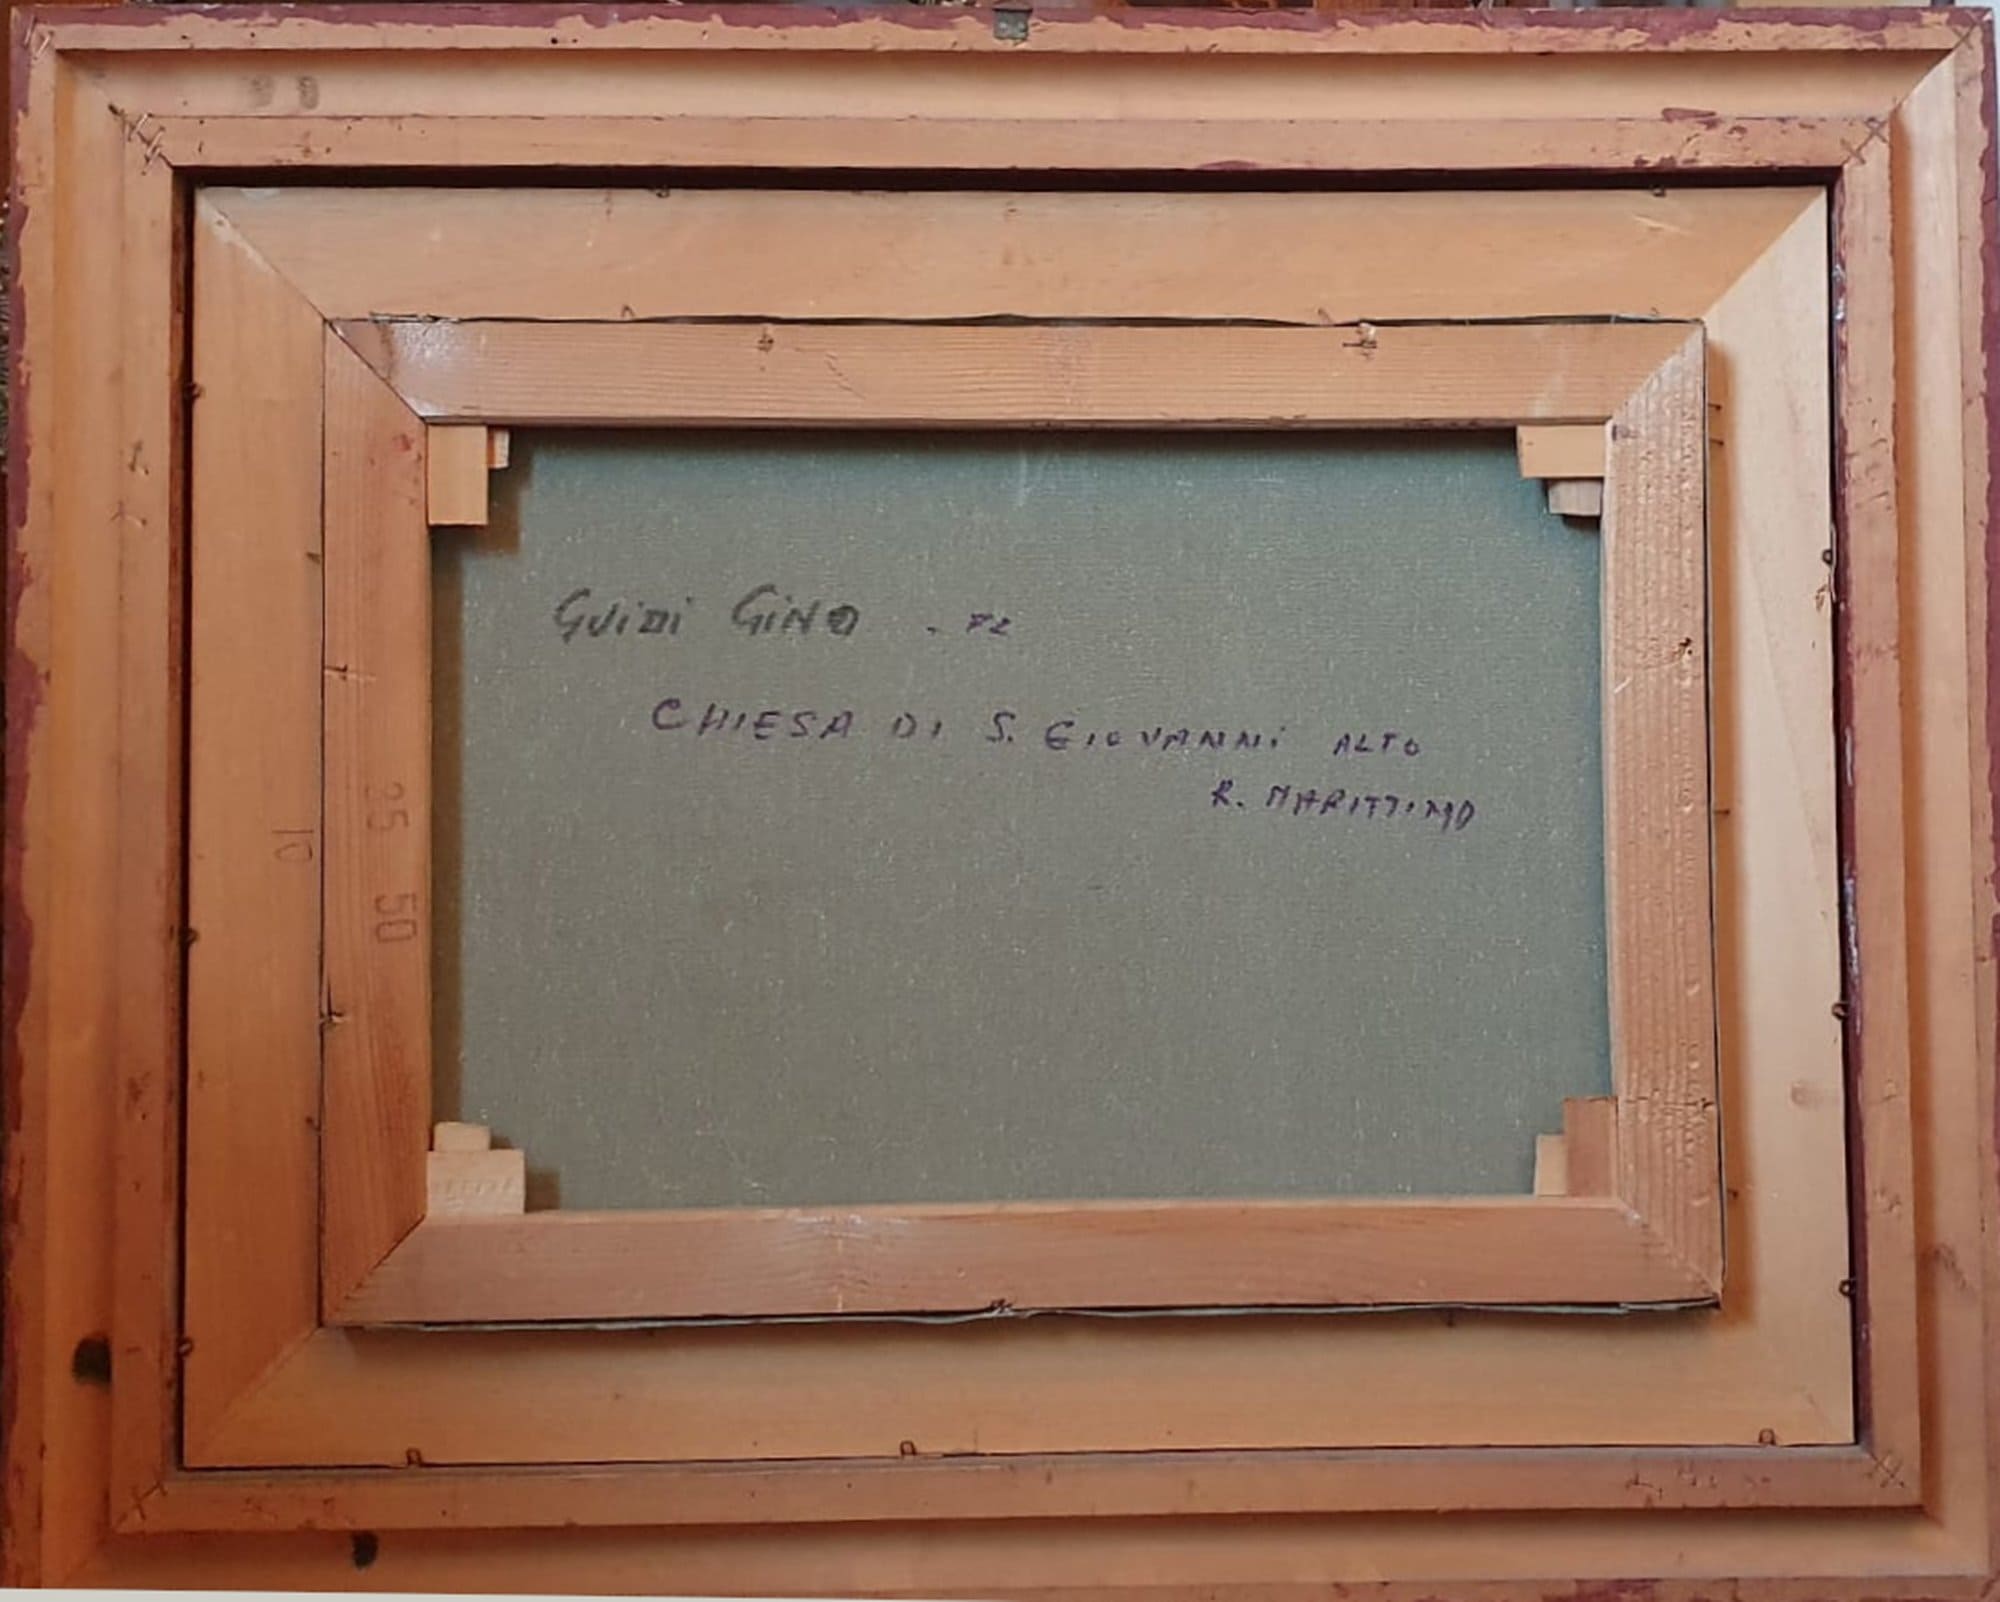 GUIDI GINO - 72
CHIESA DI S. GIOVANNI ALTO
R. MARITTIMO
35 50
10